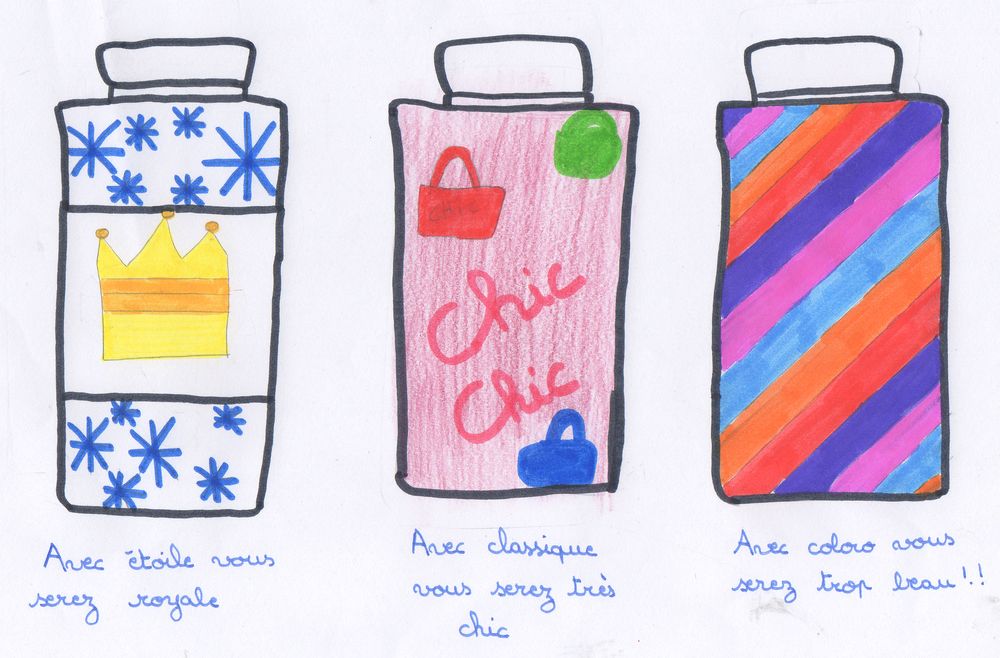 CHIC
Chic
Chic
Avec étoile vous
serez royale
Avec classique
vous serez très
chic
Avec coloro vous
serez trop beau!.!